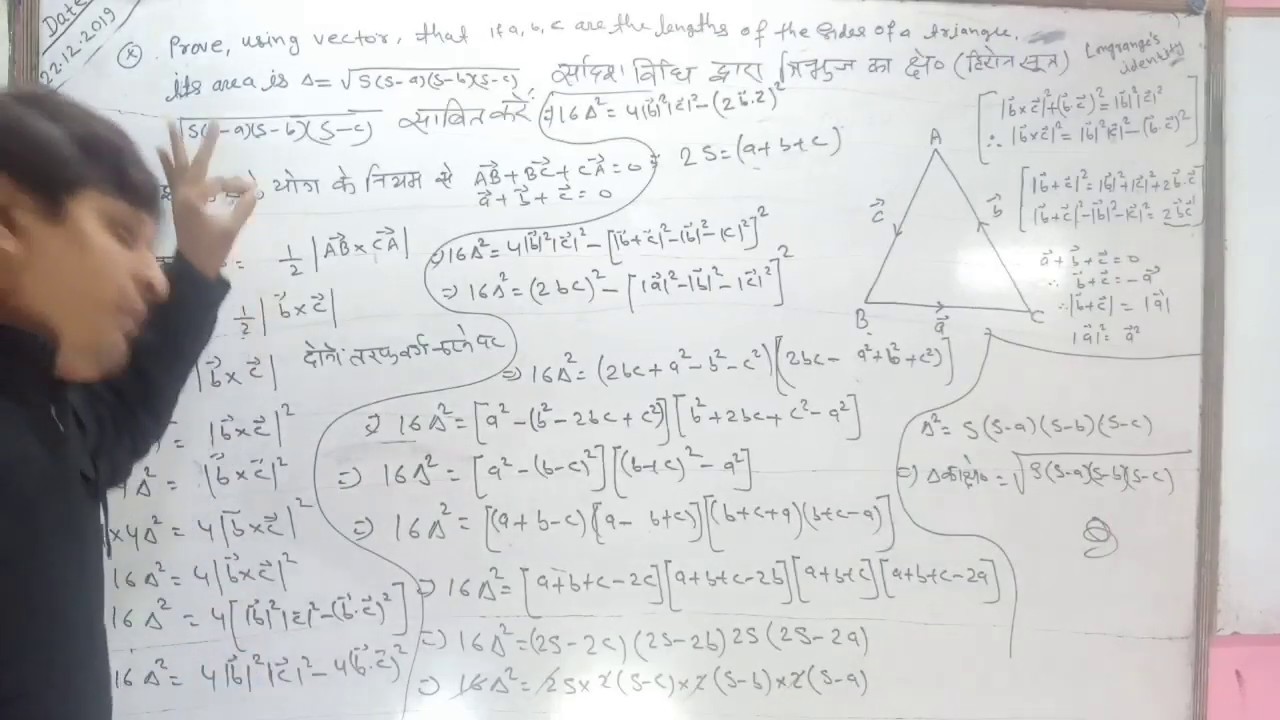 Date
22.12.2019
Prove, using vector, that if a, b, c are the lengths of the sides of a triangle,
its area is Δ = √S(S-a)(S-b)(S-c) सदिश विधि द्वारा त्रिभुज का क्षे० (हिरोन सूत्र)
साबित करें
योग के नियम से AB⃗ + BC⃗ + CA⃗ = 0
a⃗ + b⃗ + c⃗ = 0
= 1/2 |AB⃗ × CA⃗|
1/2 |b⃗ × c⃗|
|b⃗ × c⃗| दोनों तरफ वर्ग करने पर
= |b⃗ × c⃗|²
4Δ² = |b⃗ × c⃗|²
×4Δ² = 4|b⃗ × c⃗|²
16Δ² = 4|b⃗ × c⃗|²
16Δ² = 4[|b⃗|²|c⃗|² - (b⃗.c⃗)²]
16Δ² = 4|b⃗|²|c⃗|² - 4(b⃗.c⃗)²
⇒ 16Δ² = 4|b⃗|²|c⃗|² - (2b⃗.c⃗)²
2S = (a+b+c)
⇒ 16Δ² = 4|b⃗|²|c⃗|² - [|b⃗+c⃗|² - |b⃗|² - |c⃗|²]²
⇒ 16Δ² = (2bc)² - [|a⃗|² - |b⃗|² - |c⃗|²]²
⇒ 16Δ² = (2bc + a² - b² - c²)(2bc - a² + b² + c²)]
⇒ 16Δ² = [a² - (b² - 2bc + c²)][b² + 2bc + c² - a²]
⇒ 16Δ² = [a² - (b-c)²][(b+c)² - a²]
⇒ 16Δ² = [(a+b-c)(a-b+c)][(b+c+a)(b+c-a)]
⇒ 16Δ² = [a+b+c-2c][a+b+c-2b][a+b+c][a+b+c-2a]
⇒ 16Δ² = (2S-2c)(2S-2b)2S(2S-2a)
⇒ 16Δ² = 2S×2(S-c)×2(S-b)×2(S-a)
Lagrange's
identity
|b⃗×c⃗|² + (b⃗.c⃗)² = |b⃗|²|c⃗|²
∴ |b⃗×c⃗|² = |b⃗|²|c⃗|² - (b⃗.c⃗)²
|b⃗+c⃗|² = |b⃗|² + |c⃗|² + 2b⃗.c⃗
|b⃗+c⃗|² - |b⃗|² - |c⃗|² = 2b⃗c⃗
A
c⃗ b⃗
B a⃗ C
a⃗ + b⃗ + c⃗ = 0
∴ b⃗ + c⃗ = -a⃗
∴ |b⃗+c⃗| = |a⃗|
|a⃗|² = a⃗²
Δ² = S(S-a)(S-b)(S-c)
⇒ Δ का क्षे० = √S(S-a)(S-b)(S-c)